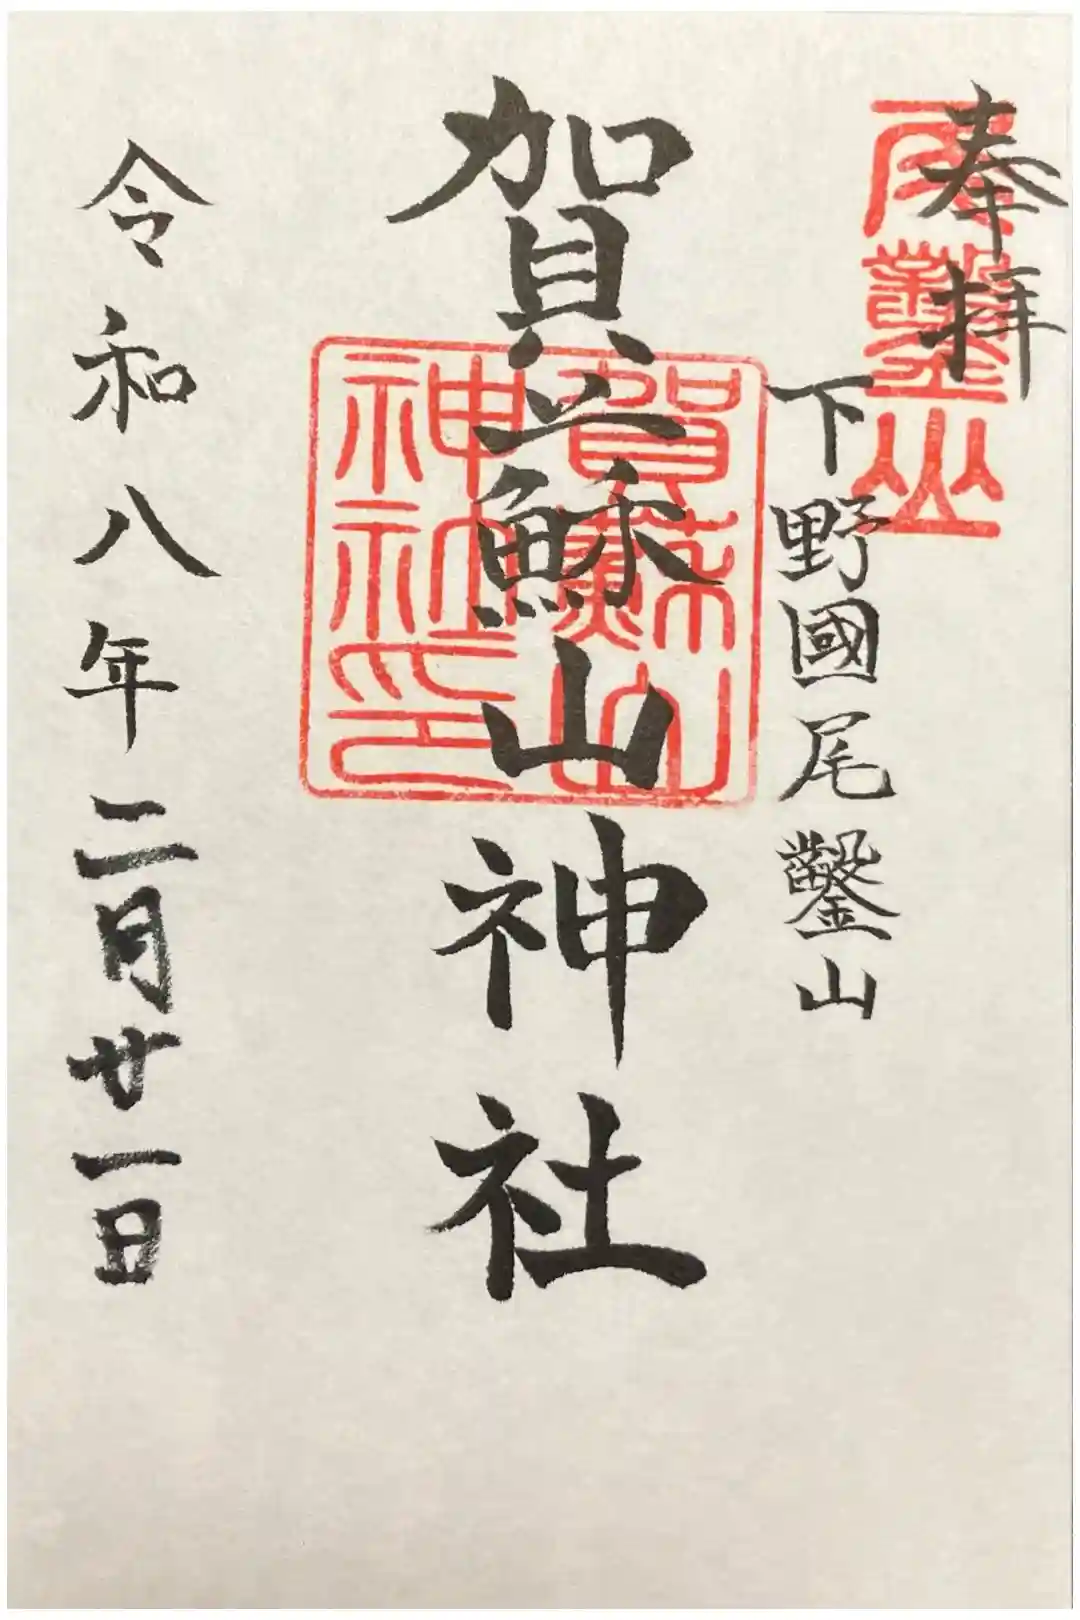 奉拝
尾鑿山
下野國尾鑿山
賀蘇山神社
賀蘇山神社印
令和八年二月廿一日